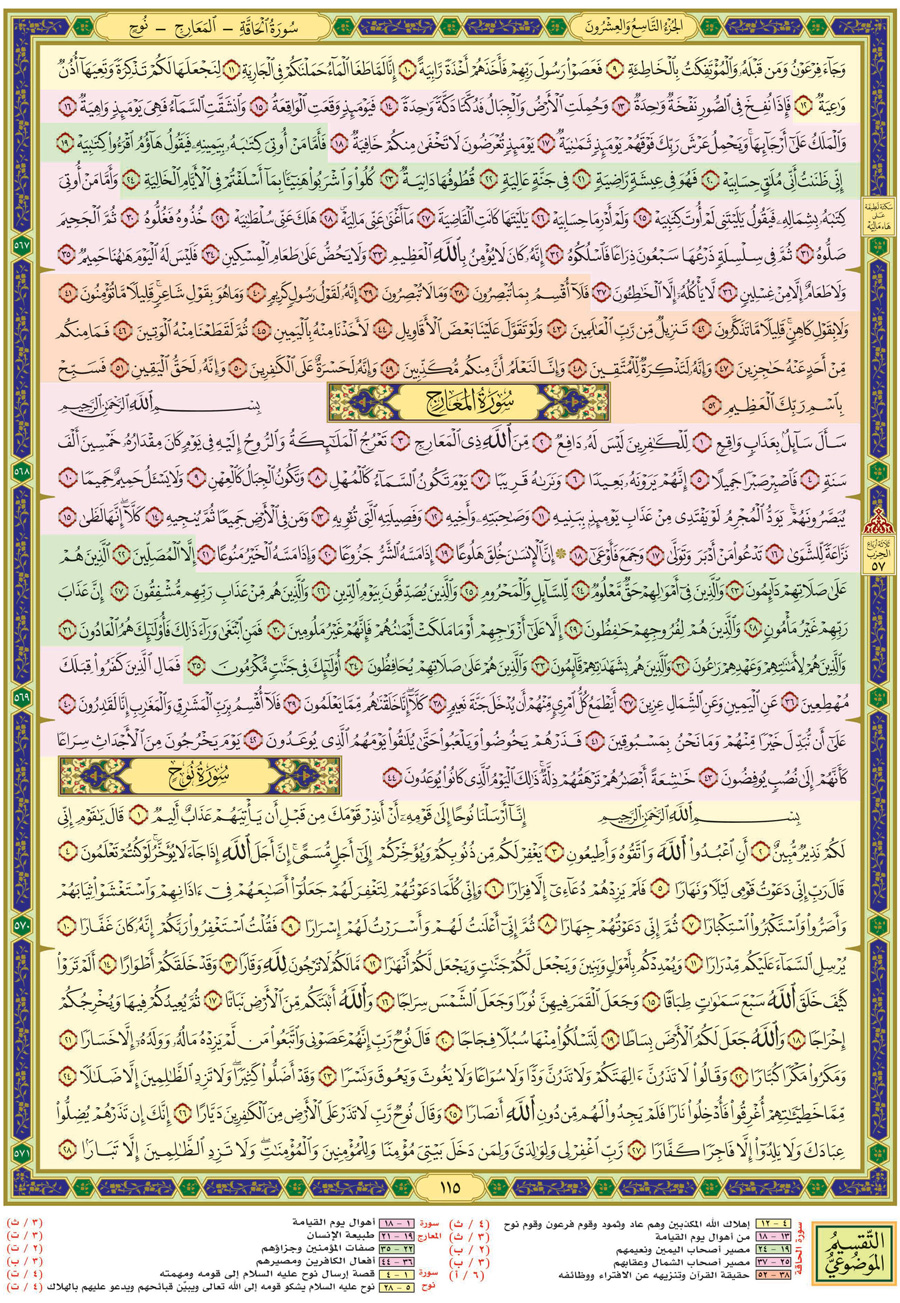 سُورَةُ الْحَاقَّةِ - الْمَعَارِجِ - نُوحٍ
الجُزْءُ التَّاسِعُ وَالعِشْرُونَ
وَجَآءَ فِرْعَوْنُ وَمَن قَبْلَهُۥ وَٱلْمُؤْتَفِكَٰتُ بِٱلْخَاطِئَةِ ٩ فَعَصَوْا۟ رَسُولَ رَبِّهِمْ فَأَخَذَهُمْ أَخْذَةً رَّابِيَةً ١٠ إِنَّا لَمَّا طَغَا ٱلْمَآءُ حَمَلْنَٰكُمْ فِى ٱلْجَارِيَةِ ١١ لِنَجْعَلَهَا لَكُمْ تَذْكِرَةً وَتَعِيَهَآ أُذُنٌ
وَٰعِيَةٌ ١٢ فَإِذَا نُفِخَ فِى ٱلصُّورِ نَفْخَةٌ وَٰحِدَةٌ ١٣ وَحُمِلَتِ ٱلْأَرْضُ وَٱلْجِبَالُ فَدُكَّتَا دَكَّةً وَٰحِدَةً ١٤ فَيَوْمَئِذٍ وَقَعَتِ ٱلْوَاقِعَةُ ١٥ وَٱنشَقَّتِ ٱلسَّمَآءُ فَهِىَ يَوْمَئِذٍ وَاهِيَةٌ ١٦
وَٱلْمَلَكُ عَلَىٰٓ أَرْجَآئِهَا وَيَحْمِلُ عَرْشَ رَبِّكَ فَوْقَهُمْ يَوْمَئِذٍ ثَمَٰنِيَةٌ ١٧ يَوْمَئِذٍ تُعْرَضُونَ لَا تَخْفَىٰ مِنكُمْ خَافِيَةٌ ١٨ فَأَمَّا مَنْ أُوتِىَ كِتَٰبَهُۥ بِيَمِينِهِۦ فَيَقُولُ هَآؤُمُ ٱقْرَءُوا۟ كِتَٰبِيَهْ ١٩
إِنِّى ظَنَنتُ أَنِّى مُلَٰقٍ حِسَابِيَهْ ٢٠ فَهُوَ فِى عِيشَةٍ رَّاضِيَةٍ ٢١ فِى جَنَّةٍ عَالِيَةٍ ٢٢ قُطُوفُهَا دَانِيَةٌ ٢٣ كُلُوا۟ وَٱشْرَبُوا۟ هَنِيٓـًٔۢا بِمَآ أَسْلَفْتُمْ فِى ٱلْأَيَّامِ ٱلْخَالِيَةِ ٢٤ وَأَمَّا مَنْ أُوتِىَ
كِتَٰبَهُۥ بِشِمَالِهِۦ فَيَقُولُ يَٰلَيْتَنِى لَمْ أُوتَ كِتَٰبِيَهْ ٢٥ وَلَمْ أَدْرِ مَا حِسَابِيَهْ ٢٦ يَٰلَيْتَهَا كَانَتِ ٱلْقَاضِيَةَ ٢٧ مَآ أَغْنَىٰ عَنِّى مَالِيَهْ ٢٨ هَلَكَ عَنِّى سُلْطَٰنِيَهْ ٢٩ خُذُوهُ فَغُلُّوهُ ٣٠ ثُمَّ ٱلْجَحِيمَ
صَلُّوهُ ٣١ ثُمَّ فِى سِلْسِلَةٍ ذَرْعُهَا سَبْعُونَ ذِرَاعًا فَٱسْلُكُوهُ ٣٢ إِنَّهُۥ كَانَ لَا يُؤْمِنُ بِٱللَّهِ ٱلْعَظِيمِ ٣٣ وَلَا يَحُضُّ عَلَىٰ طَعَامِ ٱلْمِسْكِينِ ٣٤ فَلَيْسَ لَهُ ٱلْيَوْمَ هَٰهُنَا حَمِيمٌ ٣٥
وَلَا طَعَامٌ إِلَّا مِنْ غِسْلِينٍ ٣٦ لَّا يَأْكُلُهُۥٓ إِلَّا ٱلْخَٰطِـُٔونَ ٣٧ فَلَآ أُقْسِمُ بِمَا تُبْصِرُونَ ٣٨ وَمَا لَا تُبْصِرُونَ ٣٩ إِنَّهُۥ لَقَوْلُ رَسُولٍ كَرِيمٍ ٤٠ وَمَا هُوَ بِقَوْلِ شَاعِرٍ قَلِيلًا مَّا تُؤْمِنُونَ ٤١
وَلَا بِقَوْلِ كَاهِنٍ قَلِيلًا مَّا تَذَكَّرُونَ ٤٢ تَنزِيلٌ مِّن رَّبِّ ٱلْعَٰلَمِينَ ٤٣ وَلَوْ تَقَوَّلَ عَلَيْنَا بَعْضَ ٱلْأَقَاوِيلِ ٤٤ لَأَخَذْنَا مِنْهُ بِٱلْيَمِينِ ٤٥ ثُمَّ لَقَطَعْنَا مِنْهُ ٱلْوَتِينَ ٤٦ فَمَا مِنكُم
مِّنْ أَحَدٍ عَنْهُ حَٰجِزِينَ ٤٧ وَإِنَّهُۥ لَتَذْكِرَةٌ لِّلْمُتَّقِينَ ٤٨ وَإِنَّا لَنَعْلَمُ أَنَّ مِنكُم مُّكَذِّبِينَ ٤٩ وَإِنَّهُۥ لَحَسْرَةٌ عَلَى ٱلْكَٰفِرِينَ ٥٠ وَإِنَّهُۥ لَحَقُّ ٱلْيَقِينِ ٥١ فَسَبِّحْ
بِٱسْمِ رَبِّكَ ٱلْعَظِيمِ ٥٢ سُورَةُ الْمَعَارِجِ بِسْمِ ٱللَّهِ ٱلرَّحْمَٰنِ ٱلرَّحِيمِ
سَأَلَ سَآئِلٌۢ بِعَذَابٍ وَاقِعٍ ١ لِّلْكَٰفِرِينَ لَيْسَ لَهُۥ دَافِعٌ ٢ مِّنَ ٱللَّهِ ذِى ٱلْمَعَارِجِ ٣ تَعْرُجُ ٱلْمَلَٰٓئِكَةُ وَٱلرُّوحُ إِلَيْهِ فِى يَوْمٍ كَانَ مِقْدَارُهُۥ خَمْسِينَ أَلْفَ
سَنَةٍ ٤ فَٱصْبِرْ صَبْرًا جَمِيلًا ٥ إِنَّهُمْ يَرَوْنَهُۥ بَعِيدًا ٦ وَنَرَىٰهُ قَرِيبًا ٧ يَوْمَ تَكُونُ ٱلسَّمَآءُ كَٱلْمُهْلِ ٨ وَتَكُونُ ٱلْجِبَالُ كَٱلْعِهْنِ ٩ وَلَا يَسْـَٔلُ حَمِيمٌ حَمِيمًا ١٠
يُبَصَّرُونَهُمْ يَوَدُّ ٱلْمُجْرِمُ لَوْ يَفْتَدِى مِنْ عَذَابِ يَوْمِئِذٍۭ بِبَنِيهِ ١١ وَصَٰحِبَتِهِۦ وَأَخِيهِ ١٢ وَفَصِيلَتِهِ ٱلَّتِى تُـْٔوِيهِ ١٣ وَمَن فِى ٱلْأَرْضِ جَمِيعًا ثُمَّ يُنجِيهِ ١٤ كَلَّآ إِنَّهَا لَظَىٰ ١٥
نَزَّاعَةً لِّلشَّوَىٰ ١٦ تَدْعُوا۟ مَنْ أَدْبَرَ وَتَوَلَّىٰ ١٧ وَجَمَعَ فَأَوْعَىٰٓ ١٨ ۞ إِنَّ ٱلْإِنسَٰنَ خُلِقَ هَلُوعًا ١٩ إِذَا مَسَّهُ ٱلشَّرُّ جَزُوعًا ٢٠ وَإِذَا مَسَّهُ ٱلْخَيْرُ مَنُوعًا ٢١ إِلَّا ٱلْمُصَلِّينَ ٢٢ ٱلَّذِينَ هُمْ
عَلَىٰ صَلَاتِهِمْ دَآئِمُونَ ٢٣ وَٱلَّذِينَ فِىٓ أَمْوَٰلِهِمْ حَقٌّ مَّعْلُومٌ ٢٤ لِّلسَّآئِلِ وَٱلْمَحْرُومِ ٢٥ وَٱلَّذِينَ يُصَدِّقُونَ بِيَوْمِ ٱلدِّينِ ٢٦ وَٱلَّذِينَ هُم مِّنْ عَذَابِ رَبِّهِم مُّشْفِقُونَ ٢٧ إِنَّ عَذَابَ
رَبِّهِمْ غَيْرُ مَأْمُونٍ ٢٨ وَٱلَّذِينَ هُمْ لِفُرُوجِهِمْ حَٰفِظُونَ ٢٩ إِلَّا عَلَىٰٓ أَزْوَٰجِهِمْ أَوْ مَا مَلَكَتْ أَيْمَٰنُهُمْ فَإِنَّهُمْ غَيْرُ مَلُومِينَ ٣٠ فَمَنِ ٱبْتَغَىٰ وَرَآءَ ذَٰلِكَ فَأُو۟لَٰٓئِكَ هُمُ ٱلْعَادُونَ ٣١
وَٱلَّذِينَ هُمْ لِأَمَٰنَٰتِهِمْ وَعَهْدِهِمْ رَٰعُونَ ٣٢ وَٱلَّذِينَ هُم بِشَهَٰدَٰتِهِمْ قَآئِمُونَ ٣٣ وَٱلَّذِينَ هُمْ عَلَىٰ صَلَاتِهِمْ يُحَافِظُونَ ٣٤ أُو۟لَٰٓئِكَ فِى جَنَّٰتٍ مُّكْرَمُونَ ٣٥ فَمَالِ ٱلَّذِينَ كَفَرُوا۟ قِبَلَكَ
مُهْطِعِينَ ٣٦ عَنِ ٱلْيَمِينِ وَعَنِ ٱلشِّمَالِ عِزِينَ ٣٧ أَيَطْمَعُ كُلُّ ٱمْرِئٍ مِّنْهُمْ أَن يُدْخَلَ جَنَّةَ نَعِيمٍ ٣٨ كَلَّآ إِنَّا خَلَقْنَٰهُم مِّمَّا يَعْلَمُونَ ٣٩ فَلَآ أُقْسِمُ بِرَبِّ ٱلْمَشَٰرِقِ وَٱلْمَغَٰرِبِ إِنَّا لَقَٰدِرُونَ ٤٠
عَلَىٰٓ أَن نُّبَدِّلَ خَيْرًا مِّنْهُمْ وَمَا نَحْنُ بِمَسْبُوقِينَ ٤١ فَذَرْهُمْ يَخُوضُوا۟ وَيَلْعَبُوا۟ حَتَّىٰ يُلَٰقُوا۟ يَوْمَهُمُ ٱلَّذِى يُوعَدُونَ ٤٢ يَوْمَ يَخْرُجُونَ مِنَ ٱلْأَجْدَاثِ سِرَاعًا
كَأَنَّهُمْ إِلَىٰ نُصُبٍ يُوفِضُونَ ٤٣ خَٰشِعَةً أَبْصَٰرُهُمْ تَرْهَقُهُمْ ذِلَّةٌ ذَٰلِكَ ٱلْيَوْمُ ٱلَّذِى كَانُوا۟ يُوعَدُونَ ٤٤ سُورَةُ نُوحٍ
بِسْمِ ٱللَّهِ ٱلرَّحْمَٰنِ ٱلرَّحِيمِ إِنَّآ أَرْسَلْنَا نُوحًا إِلَىٰ قَوْمِهِۦٓ أَنْ أَنذِرْ قَوْمَكَ مِن قَبْلِ أَن يَأْتِيَهُمْ عَذَابٌ أَلِيمٌ ١ قَالَ يَٰقَوْمِ إِنِّى
لَكُمْ نَذِيرٌ مُّبِينٌ ٢ أَنِ ٱعْبُدُوا۟ ٱللَّهَ وَٱتَّقُوهُ وَأَطِيعُونِ ٣ يَغْفِرْ لَكُم مِّن ذُنُوبِكُمْ وَيُؤَخِّرْكُمْ إِلَىٰٓ أَجَلٍ مُّسَمًّى إِنَّ أَجَلَ ٱللَّهِ إِذَا جَآءَ لَا يُؤَخَّرُ لَوْ كُنتُمْ تَعْلَمُونَ ٤
قَالَ رَبِّ إِنِّى دَعَوْتُ قَوْمِى لَيْلًا وَنَهَارًا ٥ فَلَمْ يَزِدْهُمْ دُعَآءِىٓ إِلَّا فِرَارًا ٦ وَإِنِّى كُلَّمَا دَعَوْتُهُمْ لِتَغْفِرَ لَهُمْ جَعَلُوٓا۟ أَصَٰبِعَهُمْ فِىٓ ءَاذَانِهِمْ وَٱسْتَغْشَوْا۟ ثِيَابَهُمْ
وَأَصَرُّوا۟ وَٱسْتَكْبَرُوا۟ ٱسْتِكْبَارًا ٧ ثُمَّ إِنِّى دَعَوْتُهُمْ جِهَارًا ٨ ثُمَّ إِنِّىٓ أَعْلَنتُ لَهُمْ وَأَسْرَرْتُ لَهُمْ إِسْرَارًا ٩ فَقُلْتُ ٱسْتَغْفِرُوا۟ رَبَّكُمْ إِنَّهُۥ كَانَ غَفَّارًا ١٠
يُرْسِلِ ٱلسَّمَآءَ عَلَيْكُم مِّدْرَارًا ١١ وَيُمْدِدْكُم بِأَمْوَٰلٍ وَبَنِينَ وَيَجْعَل لَّكُمْ جَنَّٰتٍ وَيَجْعَل لَّكُمْ أَنْهَٰرًا ١٢ مَّا لَكُمْ لَا تَرْجُونَ لِلَّهِ وَقَارًا ١٣ وَقَدْ خَلَقَكُمْ أَطْوَارًا ١٤ أَلَمْ تَرَوْا۟
كَيْفَ خَلَقَ ٱللَّهُ سَبْعَ سَمَٰوَٰتٍ طِبَاقًا ١٥ وَجَعَلَ ٱلْقَمَرَ فِيهِنَّ نُورًا وَجَعَلَ ٱلشَّمْسَ سِرَاجًا ١٦ وَٱللَّهُ أَنۢبَتَكُم مِّنَ ٱلْأَرْضِ نَبَاتًا ١٧ ثُمَّ يُعِيدُكُمْ فِيهَا وَيُخْرِجُكُمْ
إِخْرَاجًا ١٨ وَٱللَّهُ جَعَلَ لَكُمُ ٱلْأَرْضَ بِسَاطًا ١٩ لِّتَسْلُكُوا۟ مِنْهَا سُبُلًا فِجَاجًا ٢٠ قَالَ نُوحٌ رَّبِّ إِنَّهُمْ عَصَوْنِى وَٱتَّبَعُوا۟ مَن لَّمْ يَزِدْهُ مَالُهُۥ وَوَلَدُهُۥٓ إِلَّا خَسَارًا ٢١
وَمَكَرُوا۟ مَكْرًا كُبَّارًا ٢٢ وَقَالُوا۟ لَا تَذَرُنَّ ءَالِهَتَكُمْ وَلَا تَذَرُنَّ وَدًّا وَلَا سُوَاعًا وَلَا يَغُوثَ وَيَعُوقَ وَنَسْرًا ٢٣ وَقَدْ أَضَلُّوا۟ كَثِيرًا وَلَا تَزِدِ ٱلظَّٰلِمِينَ إِلَّا ضَلَٰلًا ٢٤
مِّمَّا خَطِيٓـَٰٔتِهِمْ أُغْرِقُوا۟ فَأُدْخِلُوا۟ نَارًا فَلَمْ يَجِدُوا۟ لَهُم مِّن دُونِ ٱللَّهِ أَنصَارًا ٢٥ وَقَالَ نُوحٌ رَّبِّ لَا تَذَرْ عَلَى ٱلْأَرْضِ مِنَ ٱلْكَٰفِرِينَ دَيَّارًا ٢٦ إِنَّكَ إِن تَذَرْهُمْ يُضِلُّوا۟
عِبَادَكَ وَلَا يَلِدُوٓا۟ إِلَّا فَاجِرًا كَفَّارًا ٢٧ رَّبِّ ٱغْفِرْ لِى وَلِوَٰلِدَىَّ وَلِمَن دَخَلَ بَيْتِىَ مُؤْمِنًا وَلِلْمُؤْمِنِينَ وَٱلْمُؤْمِنَٰتِ وَلَا تَزِدِ ٱلظَّٰلِمِينَ إِلَّا تَبَارًۢا ٢٨
سكتة لطيفة
على
هاء ماليه
ثلاثة أرباع
الحزب
٥٧
٥٦٧
٥٦٨
٥٦٩
٥٧٠
٥٧١
١١٥
التَّقْسِيمُ
المَوْضُوعِيُّ
سورة الحاقة
٤ - ١٢ إهلاك الله المكذبين وهم عاد وثمود وقوم فرعون وقوم نوح (٤ / ث)
١٣ - ١٨ من أهوال يوم القيامة (٣ / ث)
١٩ - ٢٤ مصير أصحاب اليمين ونعيمهم (٢ / ب)
٢٥ - ٣٧ مصير أصحاب الشمال وعقابهم (٣ / ب)
٣٨ - ٥٢ حقيقة القرآن وتنزيهه عن الافتراء ووظائفه (٦ / أ)
سورة المعارج
١ - ١٨ أهوال يوم القيامة (٣ / ث)
١٩ - ٢١ طبيعة الإنسان (٣ / ت)
٢٢ - ٣٥ صفات المؤمنين وجزاؤهم (٢ / ت)
٣٦ - ٤٤ أفعال الكافرين ومصيرهم (٣ / ب)
سورة نوح
١ - ٤ قصة إرسال نوح عليه السلام إلى قومه ومهمته (٤ / ت)
٥ - ٢٨ نوح عليه السلام يشكو قومه إلى الله تعالى ويبيّن قبائحهم ويدعو عليهم بالهلاك (٤ / ت)